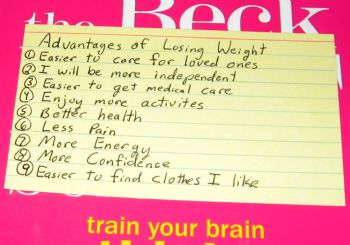 the Beck
Advantages of Losing Weight
① Easier to care for loved ones
② I will be more independent
③ Easier to get medical care
④ Enjoy more activites
⑤ Better health
⑥ Less Pain
⑦ More Energy
⑧ More Confidence
⑨ Easier to find clothes I like
train your brain